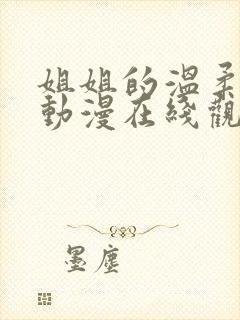 姐姐的溫柔
動漫在綫觀
墨塵